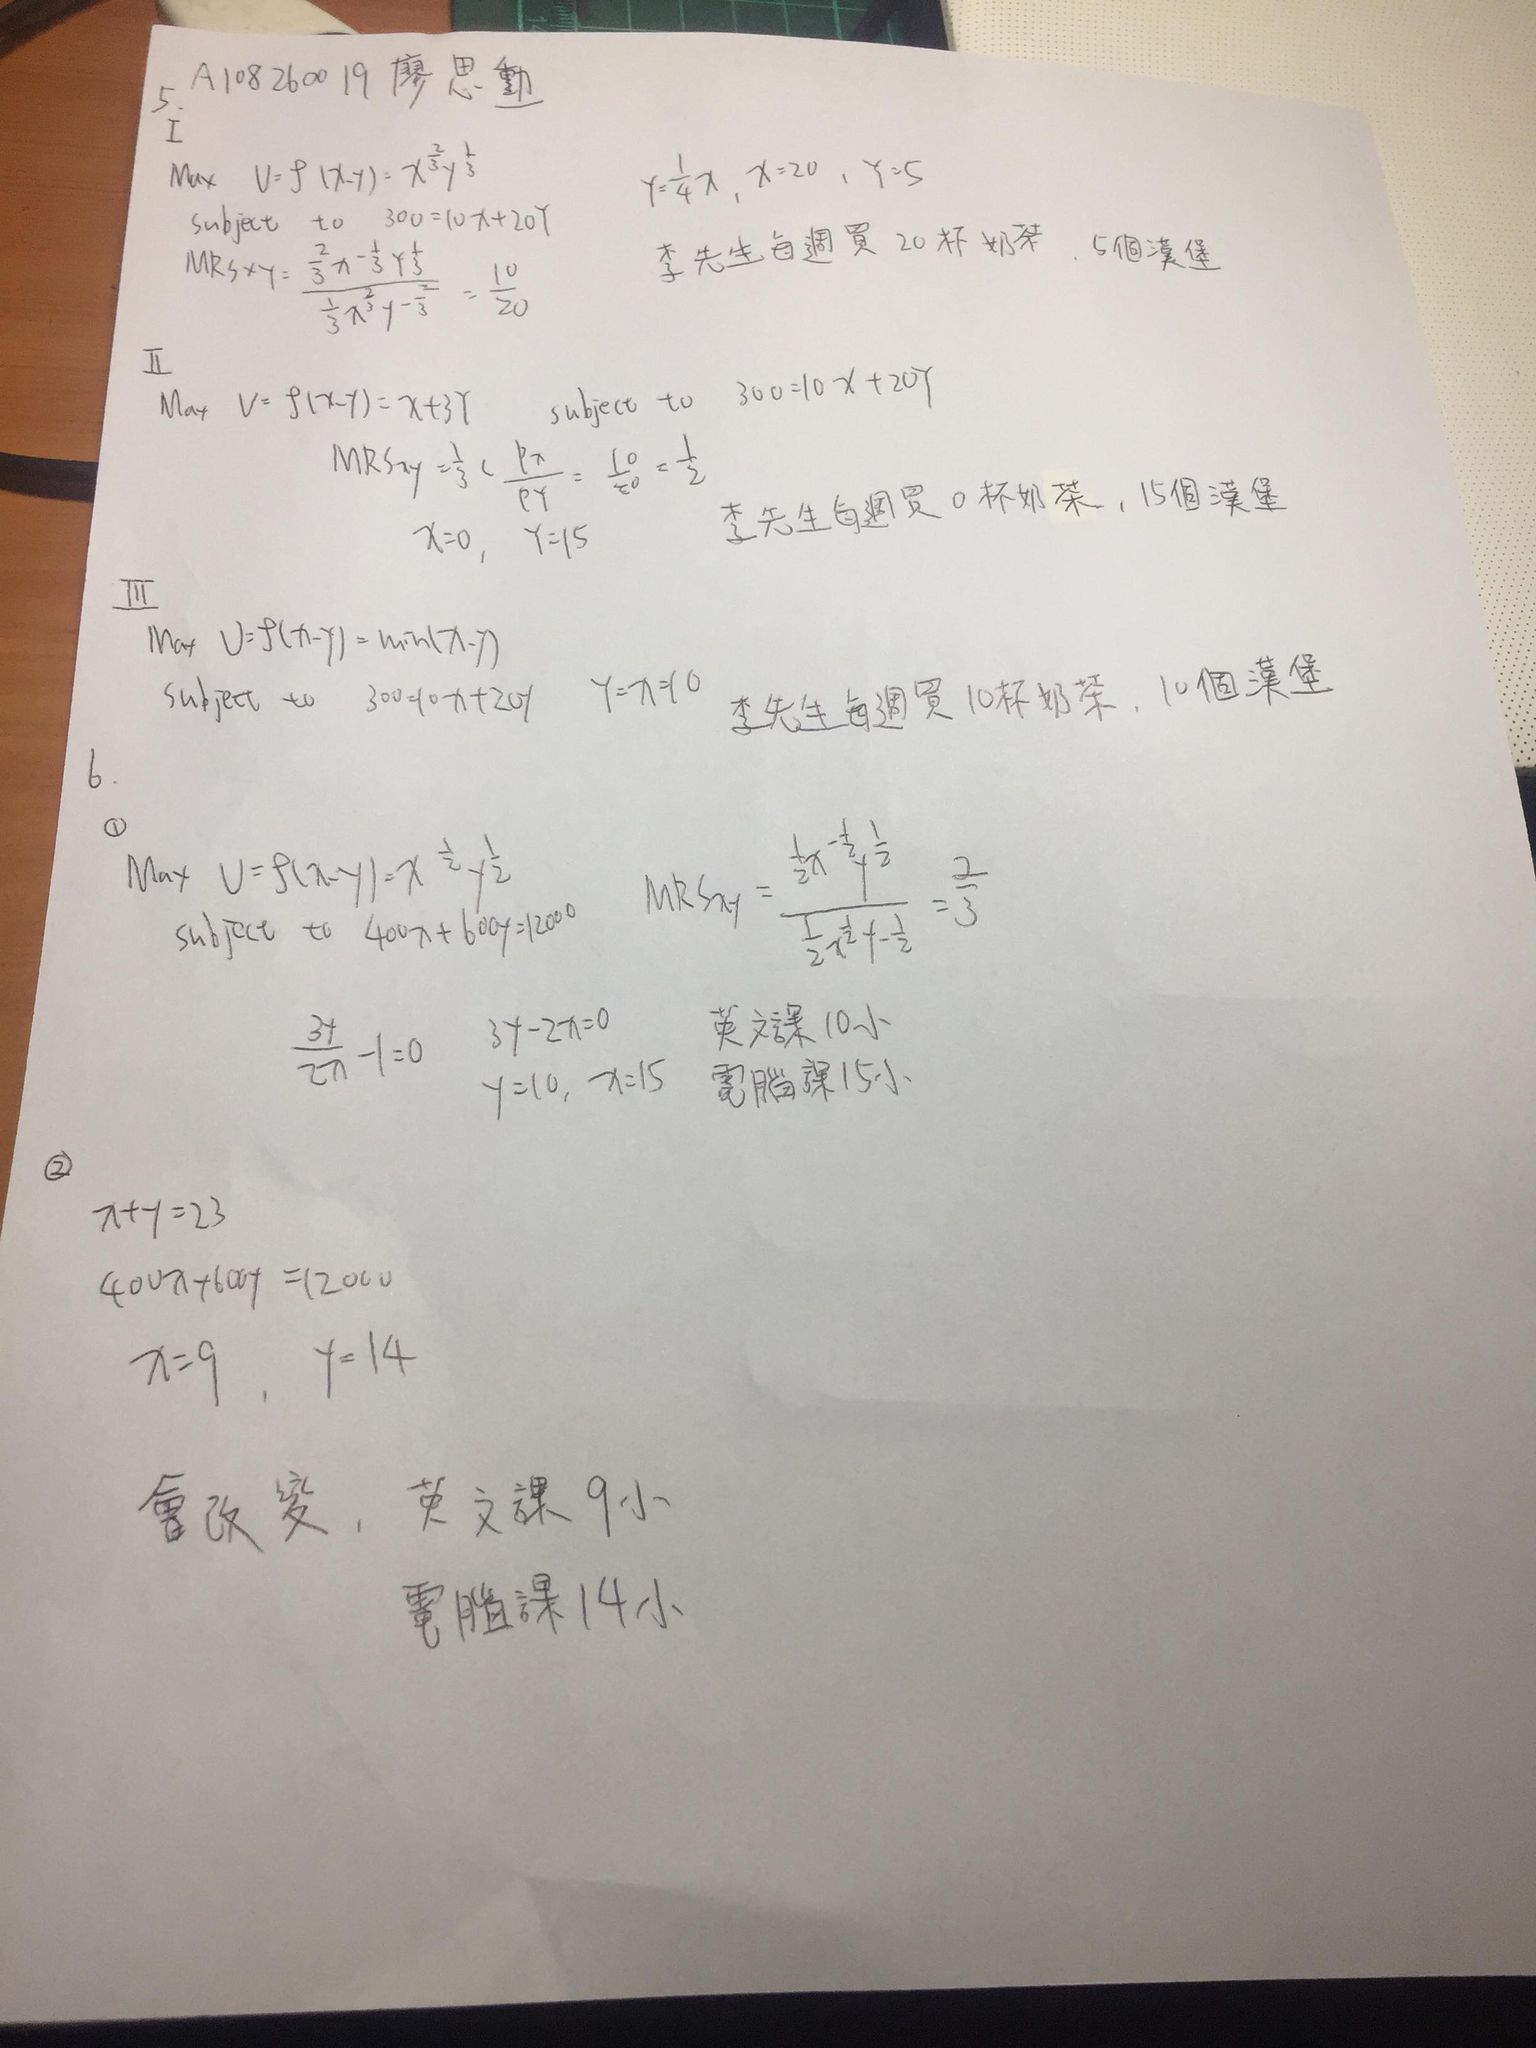 A108260019 廖思動
5.
I
Max U=f(x-y)=x^{2/3}y^{1/3}
subject to 300=10x+20Y
MRSxy=\frac{\frac{2}{3}x^{-\frac{1}{3}}y^{\frac{1}{3}}}{\frac{1}{3}x^{\frac{2}{3}}y^{-\frac{2}{3}}}=\frac{10}{20}
Y=\frac{1}{4}x, x=20, Y=5
李先生每週買20杯奶茶、5個漢堡
II
Max U=f(x-y)=x+3Y subject to 300=10x+20Y
MRSxy=\frac{1}{3}<\frac{Px}{PY}=\frac{10}{20}=\frac{1}{2}
x=0, Y=15
李先生每週買0杯奶茶,15個漢堡
III
Max U=f(x-y)=min(x-y)
subject to 300=10x+20Y Y=x=10
李先生每週買10杯奶茶、10個漢堡
6.
①
Max U=f(x-y)=x^{1/2}y^{1/2}
subject to 400x+600y=12000
MRSxy=\frac{\frac{1}{2}x^{-\frac{1}{2}}y^{\frac{1}{2}}}{\frac{1}{2}x^{\frac{1}{2}}y^{-\frac{1}{2}}}=\frac{2}{3}
\frac{3y}{2x}-1=0 3y-2x=0 英文課10小
y=10, x=15 電腦課15小
②
x+y=23
400x+600y=12000
x=9, y=14
會改變, 英文課9小
電腦課14小